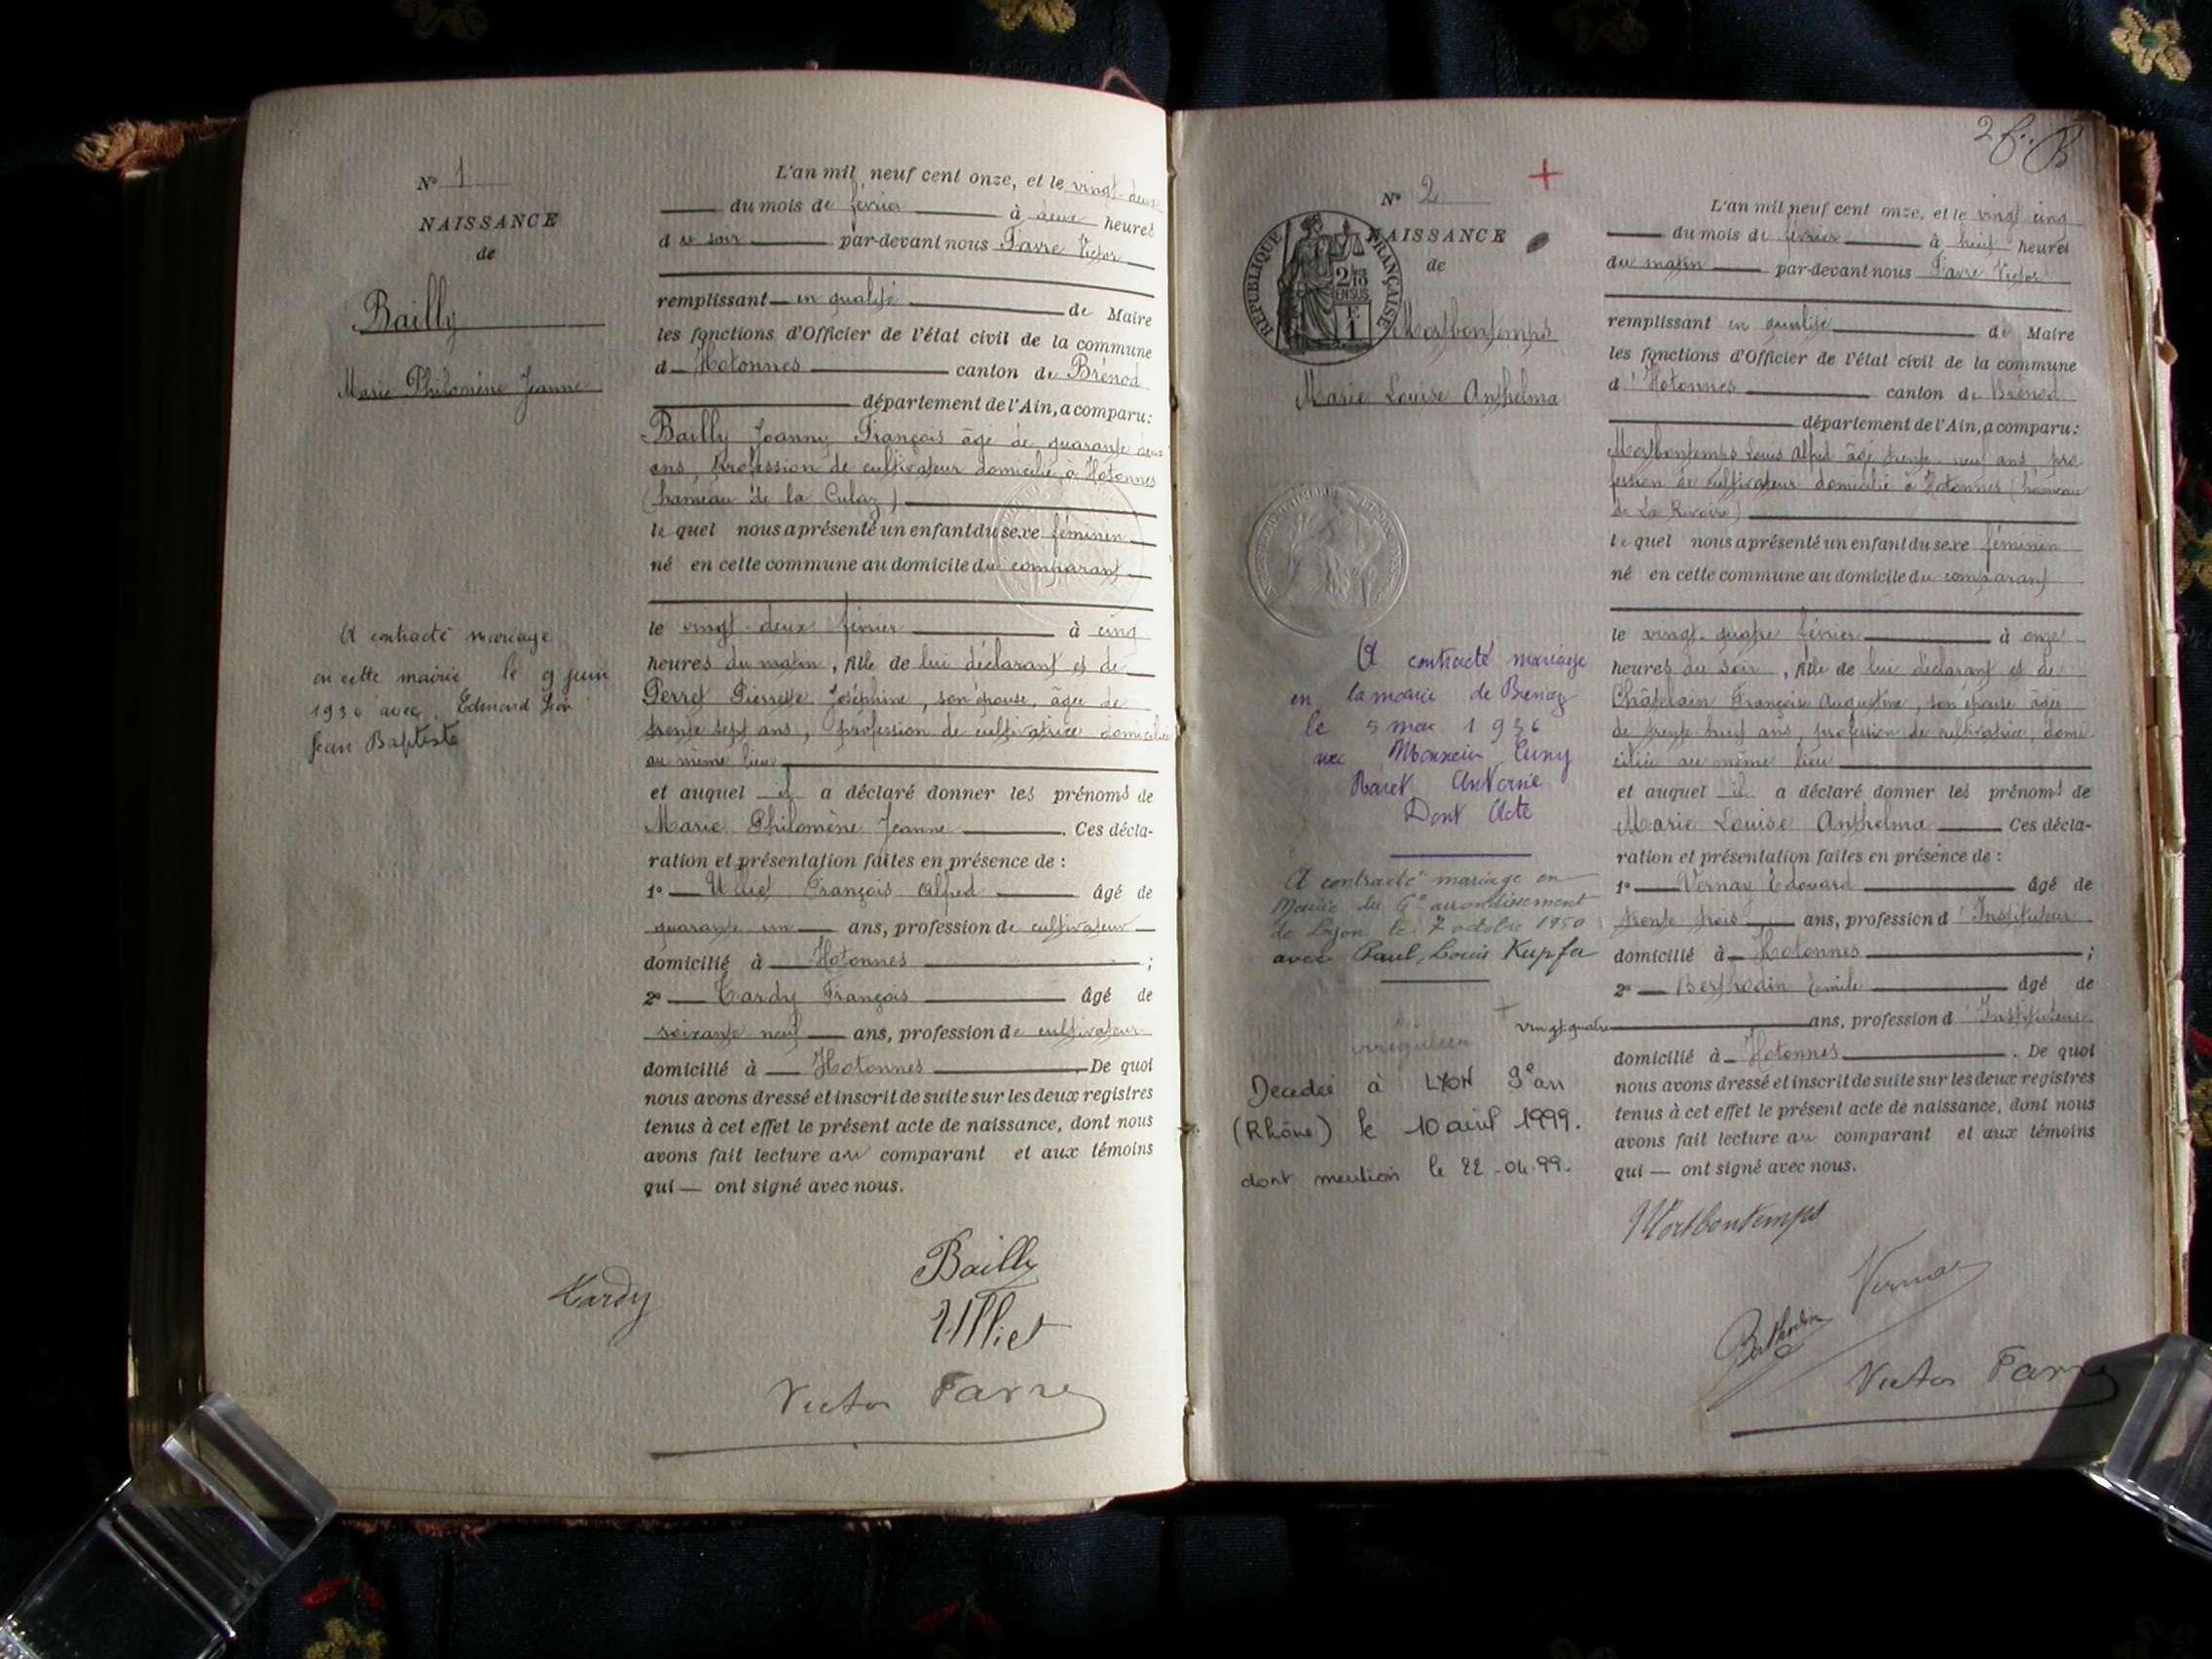 N° 1
NAISSANCE
de
Bailly
Marie Philomène Jeanne
A contracté mariage
en cette mairie le 9 juin
avec Edmond Léon
Jean Baptiste
L'an mil neuf cent onze, et le vingt-deux
du mois de février à deux heures
du soir par-devant nous Favre Victor
remplissant en qualité de Maire
les fonctions d'Officier de l'état civil de la commune
d Hotonnes canton de Brénod
département de l'Ain, a comparu:
Bailly Joanny François âgé de quarante deux
ans, profession de cultivateur domicilié à Hotonnes
(hameau de la Culaz)
le quel nous a présenté un enfant du sexe féminin
né en cette commune au domicile du comparant
le vingt-deux février à cinq
heures du matin, fille de lui déclarant et de
Perret Pierrette Joséphine, son épouse, âgée de
trente sept ans, profession de cultivatrice domiciliée
au même lieu
et auquel il a déclaré donner les prénoms de
Marie Philomène Jeanne. Ces décla-
ration et présentation faites en présence de :
1° Ulliet François Alfred âgé de
quarante un ans, profession de cultivateur
domicilié à Hotonnes ;
2° Tardy François âgé de
soixante neuf ans, profession de cultivateur
domicilié à Hotonnes De quoi
nous avons dressé et inscrit de suite sur les deux registres
tenus à cet effet le présent acte de naissance, dont nous
avons fait lecture au comparant et aux témoins
qui — ont signé avec nous.
Bailly
Tardy
Ulliet
Victor Favre
N° 2
NAISSANCE
de
REPUBLIQUE FRANÇAISE
2/10
EN SUS
1 F
Mortbontemps
Marie Louise Anthelma
A contracté mariage
en la mairie de Bénaz
le 5 mai 1936
avec Monsieur Cuny
Antoine
Dont Acte
A contracté mariage en
Mairie du 6e arrondissement
de Lyon le 7 octobre 1950
avec Paul, Louis Kupfer
Décédée à LYON 9e arr
(Rhône) le 10 avril 1999.
dont mention le 22-04-99.
L'an mil neuf cent onze, et le vingt cinq
du mois de février à huit heures
du matin par-devant nous Favre Victor
remplissant en qualité de Maire
les fonctions d'Officier de l'état civil de la commune
d'Hotonnes canton de Brénod
département de l'Ain, a comparu:
Mortbontemps Louis Alfred âgé trente-neuf ans pro
fession de cultivateur domicilié à Hotonnes (hameau
de La Rivoire)
le quel nous a présenté un enfant du sexe féminin
né en cette commune au domicile du comparant
le vingt-quatre février à onze
heures du soir, fille de lui déclarant et de
Châtelain Françoise Augustine, son épouse âgée
de trente-huit ans, profession de cultivatrice, domi-
ciliée au même lieu
et auquel il a déclaré donner les prénoms de
Marie Louise Anthelma Ces décla-
ration et présentation faites en présence de :
1° Vernay Edouard âgé de
trente trois ans, profession d'Instituteur
domicilié à Hotonnes ;
2° Berthodin Emile âgé de
vingt quatre ans, profession d'Instituteur
domicilié à Hotonnes. De quoi
nous avons dressé et inscrit de suite sur les deux registres
tenus à cet effet le présent acte de naissance, dont nous
avons fait lecture au comparant et aux témoins
qui — ont signé avec nous.
Mortbontemps
Vernay
Berthodin
Victor Favre